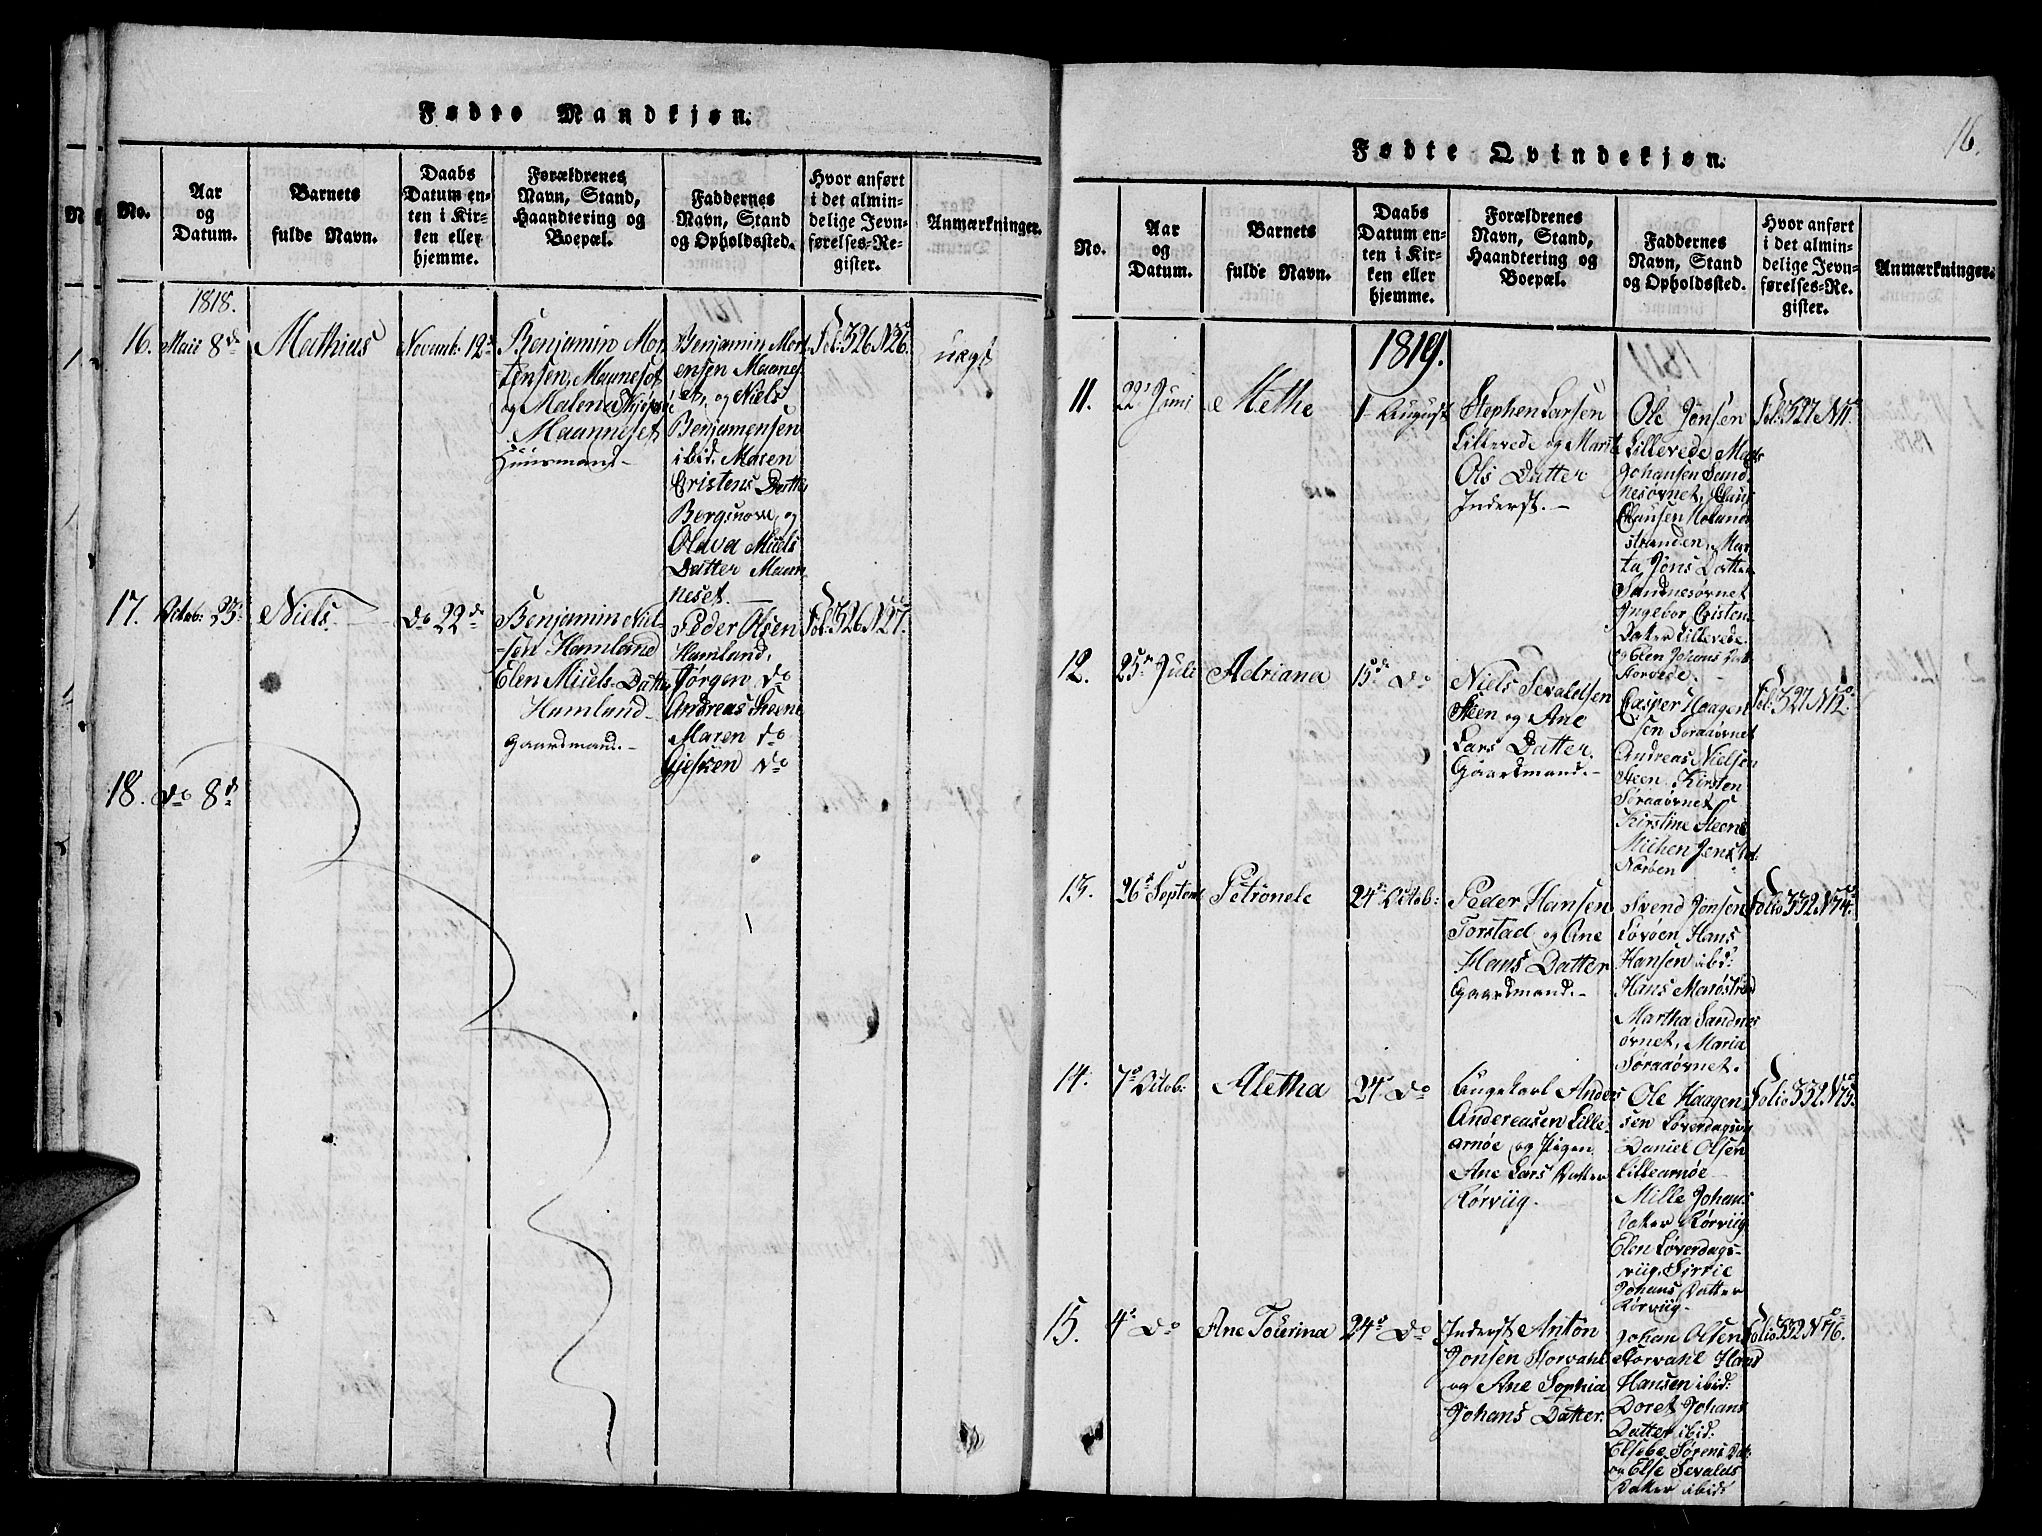 Fødte Mandkjøn.
No.
Aar
og
Datum.
Barnets
fulde Navn.
Daabs
Datum en-
ten i Kir-
ken eller
hjemme.
Forældrenes
Navn, Stand,
Haandtering og
Boepæl.
Faddernes
Navn, Stand
og Opholdssted.
Hvor anført
i det almin-
delige Jevn-
førelses-Re-
gister.
Anmærkninger.
1818.
16.
Maii 8de
Mathius
Novemb: 12te
Benjamin Mor-
tensen, Maaneset
og Malena
Maanneset
Huusmand
Benjamin Mort-
ensen Maanes-
et, og Niels
Benjamensen
ibid. Maren
Cristens Datter
Borgsnove og
Olava Niels
Datter Maan-
neset.
Fol: 326 No 26.
uægt
17.
Octob: 23
Niels
do 22de
Benjamin Niel-
sen Hamland
Elen Niels Datter
Hamland
Gaardmand.
Peder Olsen
Hamland,
Jørgen do
Andreas
Maren do
Gjesken do
Fol: 326 No 27.
18.
do 8de
16.
Fødte Qvindekjøn.
No.
Aar
og
Datum.
Barnets
fulde Navn.
Daabs
Datum en-
ten i Kir-
ken eller
hjemme.
Forældrenes
Navn, Stand,
Haandtering og
Boepæl.
Faddernes
Navn, Stand
og Opholdssted.
Hvor anført
i det almin-
delige Jevn-
førelses-Re-
gister.
Anmærkninger.
1819.
11.
22de Juni
Methe
1 August
Stephen Larsen
Lillevede og Marit
Ols Datter
Inderst.
Ole Jonsen
Lillevede, Mads
Johansen Sand-
nesøvnet, Claus
Clausen Molands
stranden, Mar-
ta Jons Datter
Sandnesøvnet
Ingebor Cristen
Datter Lillevede
og Elen Johans Dat
Fol: 327 No 11.
12.
25de Juli
Adriana
15de do
Niels Sevaldsen
Steen og Ane
Lars Datter,
Gaardmand.
Casper Haagen-
sen Søraaøvnet
Andreas Nielsen
Steen, Kirsten
Søraaøvnet
Kirstine Steen
Jens
Fol: 327 No 12.
13.
26de Septemb
Petronele
24de Octob:
Peder Hansen
Torstad og Ane
Hans Datter
Gaardmand.
Svend Jonsen
Hans
Hansen ibid:
Hans
Martha Sandnes-
øvnet, Maria
Søraaøvnet.
Folio 332 No 74.
14.
7de Octob:
Aletha
24de do
Ungekarl Anders
Andereasen Lille-
arnøe og Pigen
Ane Lars Datter
Rørviig.
Ole Haagen-
sen Løverdagsvig
Daniel Olsen
Lillearnøe
Mille Johans
Datter Rørviig
Elen Løverdags-
viig, Sirrie
Johans Datter
Rørviig.
Folio 332 No 75.
15.
4de do
Ane Tourina
24de do
Inderst Anton
Jonsen Storvahl
og Ane Sophia
Johans Datter.
Johan Olsen
Storvahl Hans
Hansen ibid:
Doret Johans
Datter ibid.
Elsebe Sørens Dat:
og Else Sevalds
Datter ibid:
Folio 332 No 76.